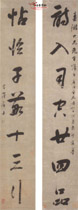 詩入司空廿四品
帖臨子敬十三行